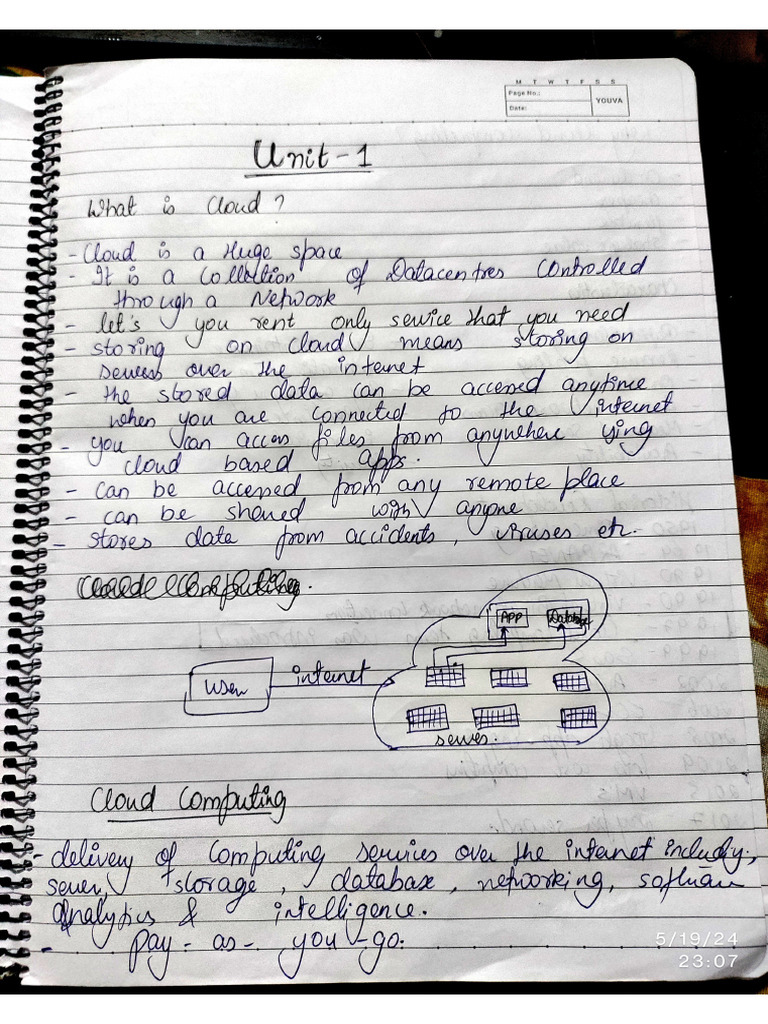 M T W T F S S
Page No.:
Date:
YOUVA
Unit-1
What is Cloud?
- Cloud is a Huge space
- It is a Collection of Datacentres Controlled
through a Network
- let's you rent only service that you need
- storing on Cloud means storing on
servers over the internet
- the stored data can be accessed anytime
when you are connected to the internet
- you can access files from anywhere using
cloud based apps.
- can be accessed from any remote place
- can be shared with anyone
- stores data from accidents, viruses etc.
APP Database
user internet
server.
Cloud Computing
- delivery of computing services over the internet including,
server, storage, database, networking, software
Analytics & intelligence.
- pay-as-you-go.
5/19/24
23:07